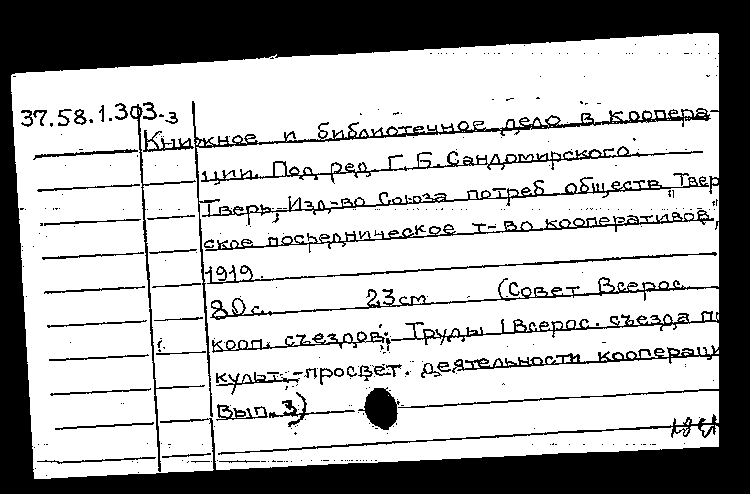 37.58.1.303-3
Книжное и библиотечное дело в коопера-
ции. Под ред. Г. Б. Сандомирского.
Тверь, Изд-во Союза потреб обществ "Твер
ское посредническое т-во кооперативов",
1919.
80с. 23cm (Совет Всерос.
кооп. съездов; Труды I Всерос. съезда п
культ.-просвет. деятельности кооперац
Вып. 3)